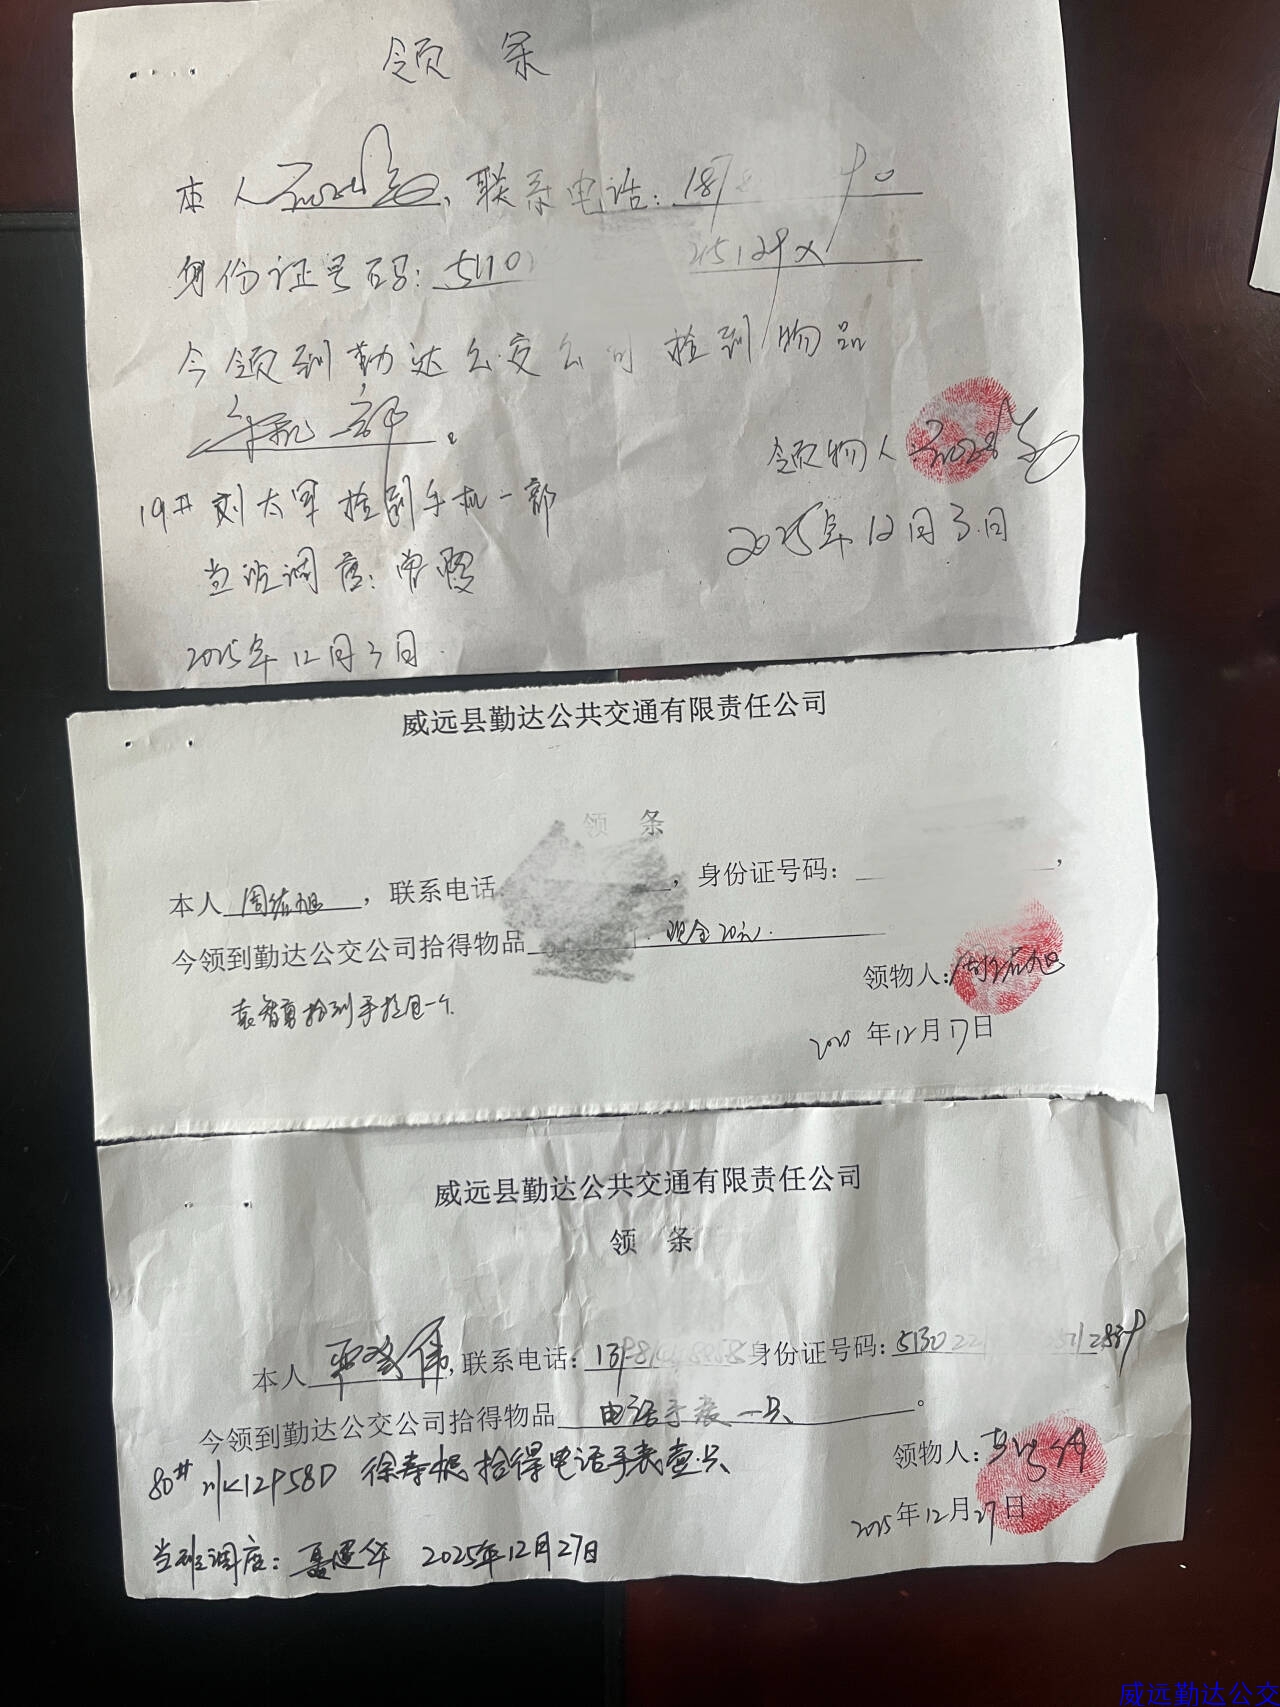 领 条
本人 , 联系电话: 187 90
身份证号码: 5110 25129X
今领到勤达公交公司捡到物品
手机一部。
领物人:
19# 刘大军捡到手机一部
2025年12月3日
当班调度: 曾
2025年12月3日.
威远县勤达公共交通有限责任公司
领 条
本人 周 旭 , 联系电话 , 身份证号码: ,
今领到勤达公交公司拾得物品 现金20元.
领物人: 周 旭
袁智勇捡到手拉包一个.
2025年12月17日
威远县勤达公共交通有限责任公司
领 条
本人 伟, 联系电话: 139 身份证号码: 513022 2839
今领到勤达公交公司拾得物品 电话手表一只 。
80# 川K12958D 徐寿根拾得电话手表壹只
领物人:
2025年12月27日
当班调度: 聂 华 2025年12月27日
威远勤达公交